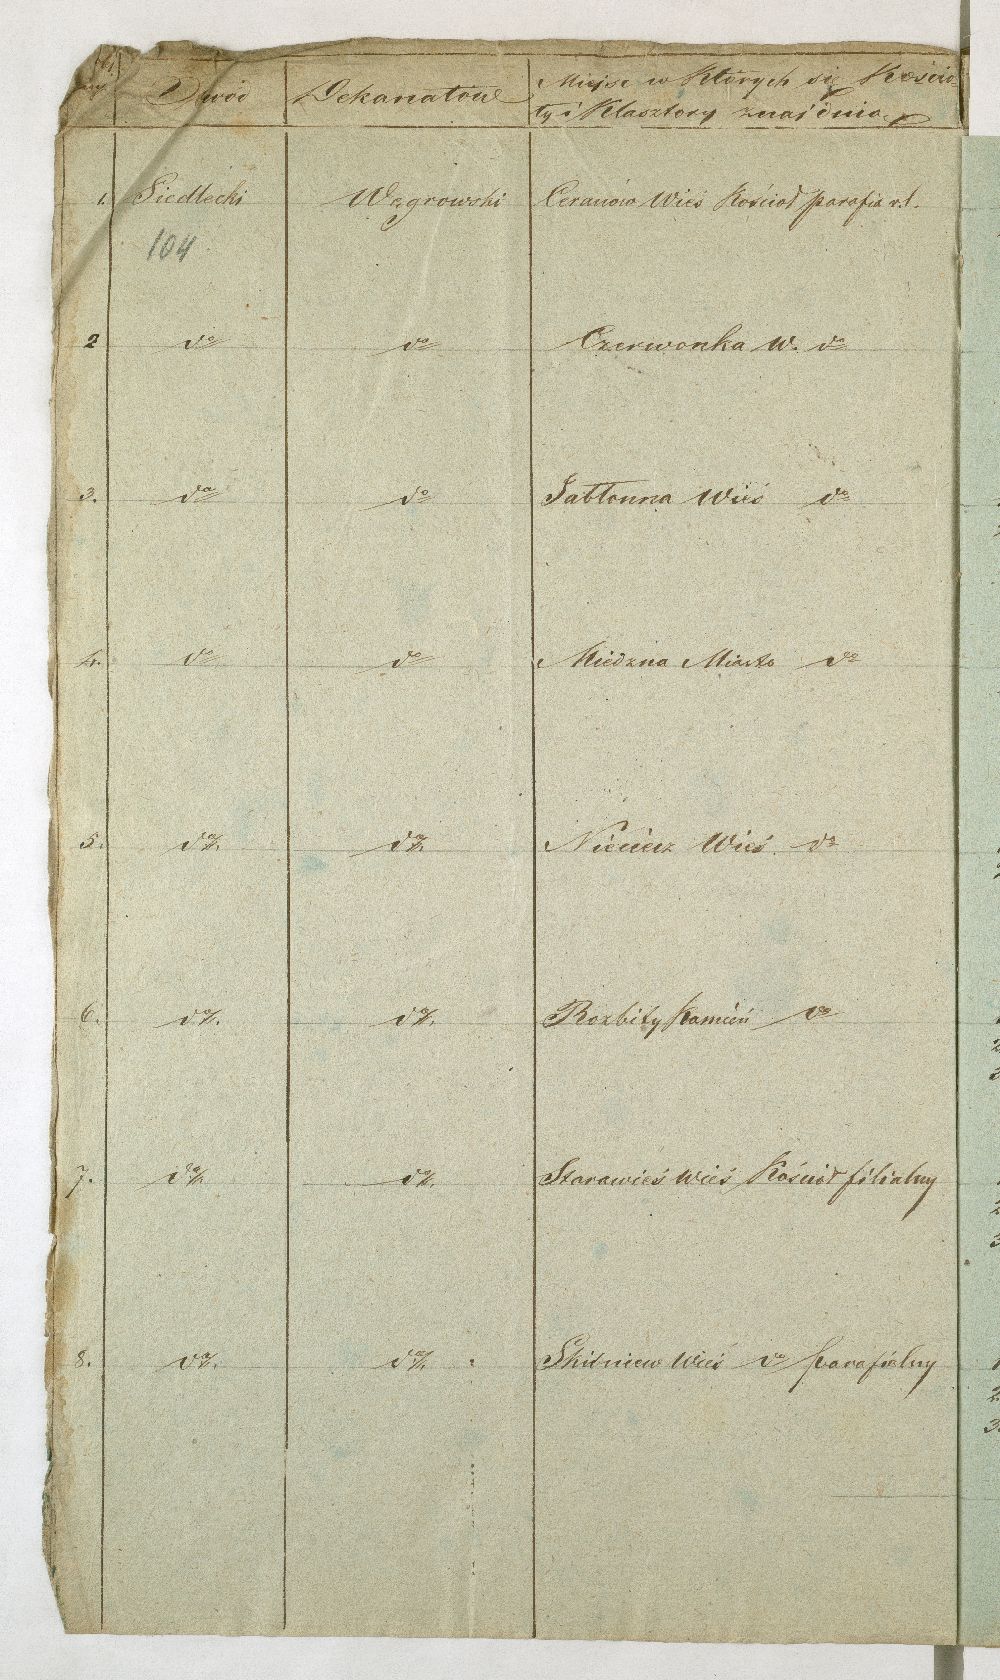 Dekanatów Miejsc w których się Kościo-
ły i Klasztory znajdują
1. Siedlecki Węgrowski Ceranów Wieś Kościoł parafia r.l.
104
2 do do Czerwonka W. do
3. do do Jabłonna Wieś do
4. do do Miedzna Miasto do
5. do do Nieciecz Wieś do
6. do do Rozbity Kamień do
7. do do Starawieś Wieś Kościoł filialny
8. do do Skibniew Wieś do parafialny